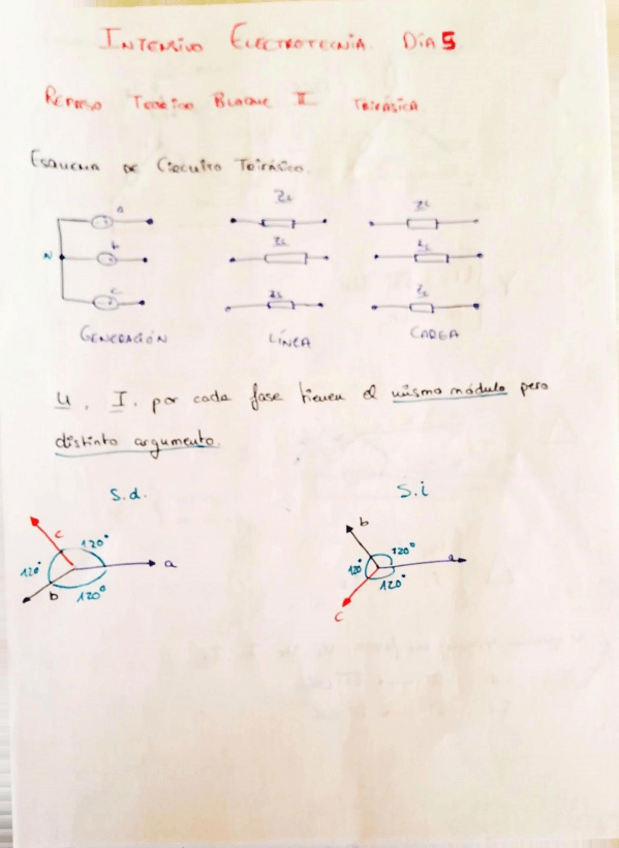 INTENSIVO ELECTROTECNIA. DÍA 5
REPASO TEÓRICO BLOQUE II TRIFÁSICA
ESQUEMA DE CIRCUITO TRIFÁSICO.
a
ZL
ZL
N
b
ZL
ZL
c
ZL
ZL
GENERACIÓN
LÍNEA
CARGA
U, I. por cada fase tienen el mismo módulo pero
distinto argumento.
S.d.
S.i
c
120°
a
120°
b
120°
b
120°
a
120°
120°
c